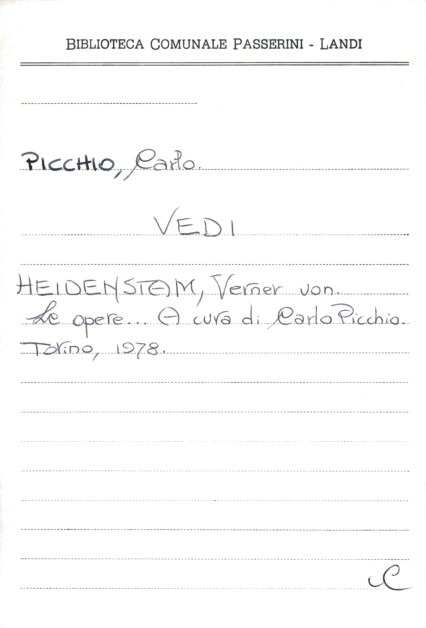 BIBLIOTECA COMUNALE PASSERINI - LANDI
PICCHIO, Carlo.
VEDI
HEIDENSTAM, Verner von.
Le opere... A cura di Carlo Picchio.
Torino, 1978.